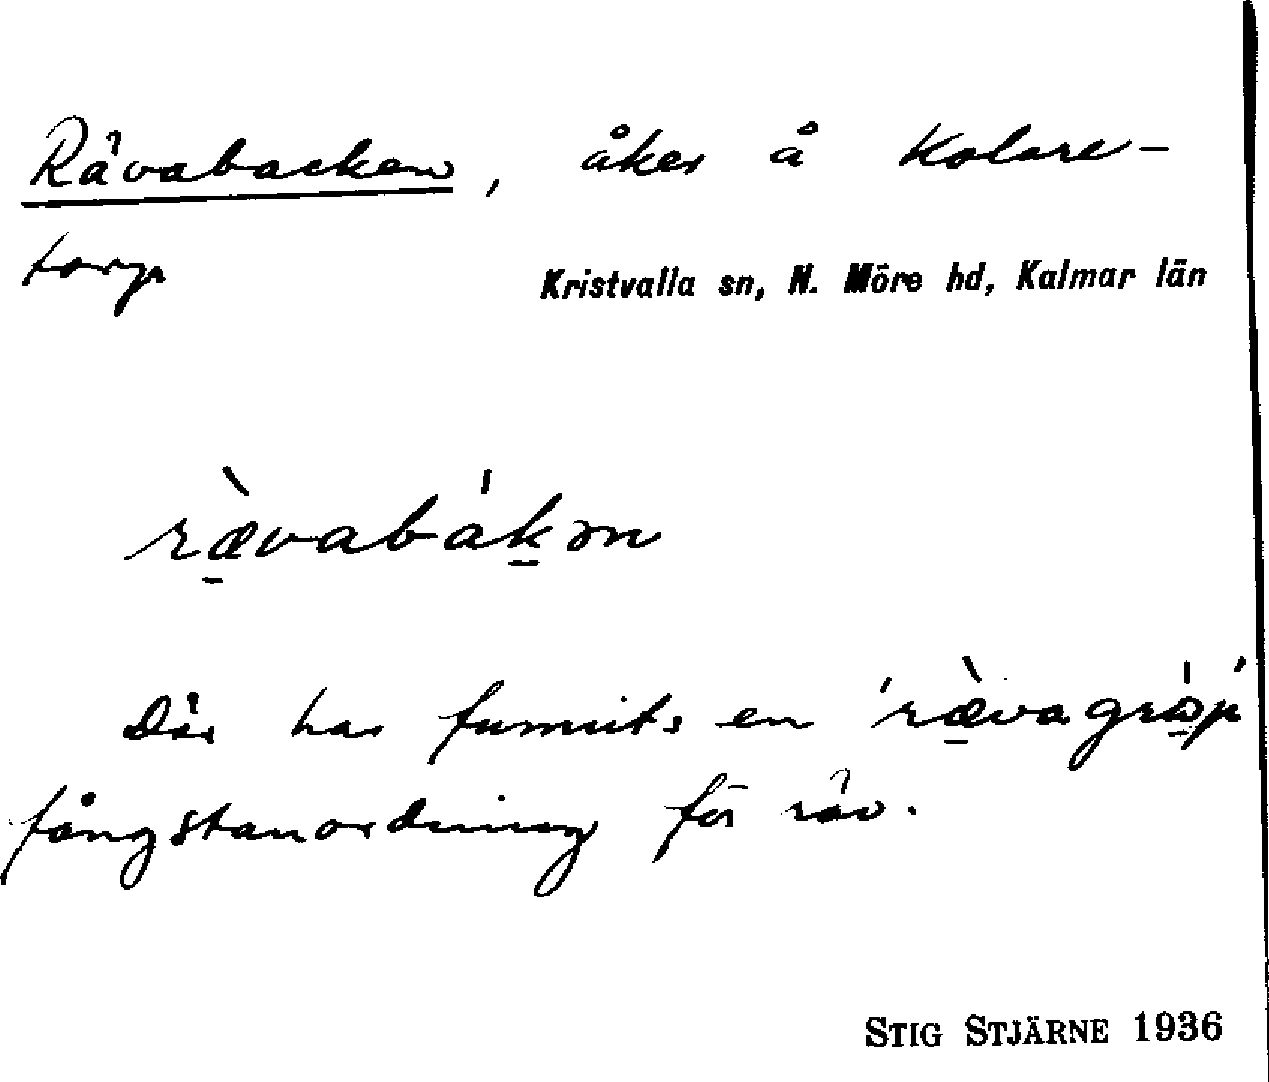 Rävabacken, åker å Kolare-
torp
Kristvalla sn, N. Möre hd, Kalmar län
r&#x300;æ̱vabáḵən
Där har funnits en 'ræ̱̀vagrɷ̱́p'
fångstanordning för räv.
STIG STJÄRNE 1936